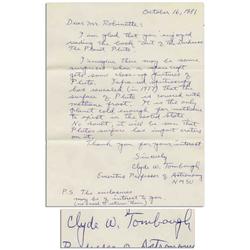 October 16, 1991
Dear Mr. Robinette:
I am glad that you enjoyed
reading the book "Out of the Darkness
The Planet Pluto
I imagine there may be some
surprises when a spacecraft
gets some close-up pictures of
Pluto. Infra-red spectroscopy
has revealed (in 1977) that the
surface of Pluto is covered with
methane frost. It is the only
planet cold enough for methane
to exist in the solid state
No doubt, it will be seen that
Pluto's surface has impact craters
on it.
Thank you for your interest
Sincerely
Clyde W. Tombaugh
Emeritus Professor of Astronomy
NMSU
P.S. The enclosures
may be of interest to you
Clyde W. Tombaugh
Professor of Astronomy